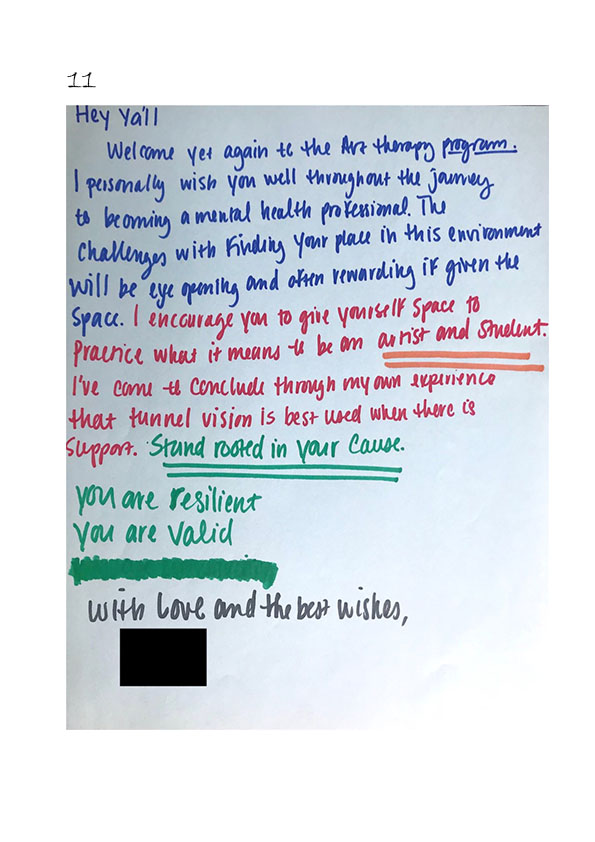 11
Hey Ya'll
Welcome yet again to the Art therapy program.
I personally wish you well throughout the journey
to becoming a mental health professional. The
challenges with Finding your place in this environment
will be eye opening and often rewarding if given the
space. I encourage you to give yourself space to
Practice what it means to be an artist and student.
I've come to conclude through my own experience
that tunnel vision is best used when there is
support. Stand rooted in your cause.
you are resilient
you are valid
with love and the best wishes,